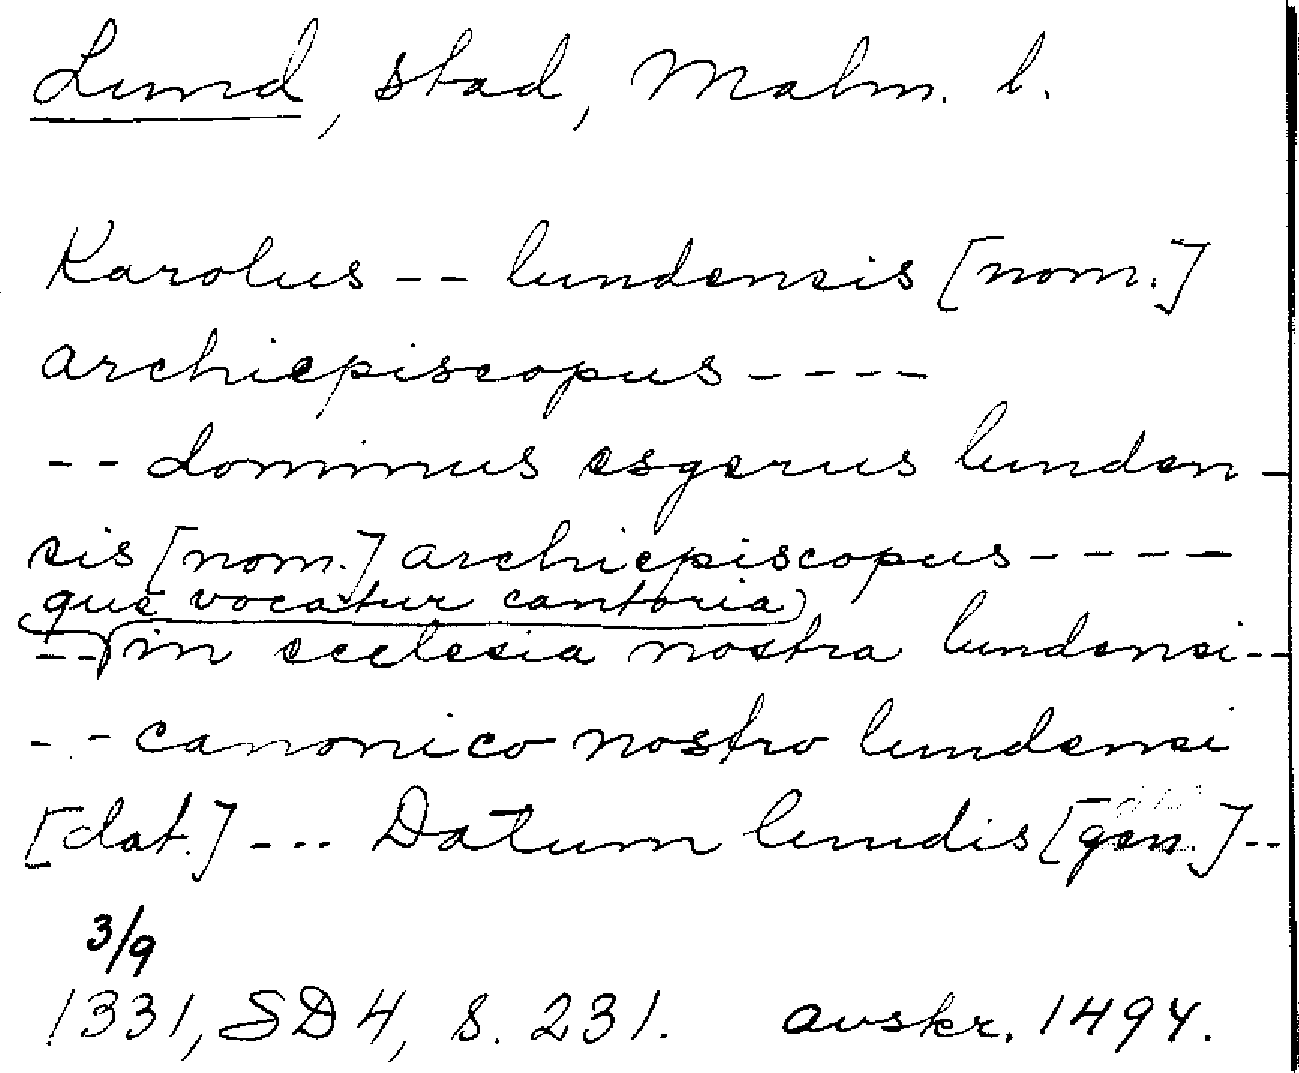 Lund, stad, Malm. l.
Karolus -- lundensis [nom.]
archiepiscopus ----
-- dominus esgerus lunden-
sis [nom.] archiepiscopus ----
que vocatur cantoria
-- in ecclesia nostra lundensi --
-- canonico nostro lundensi
[dat.] --- Datum lundis [gen.] --
3/9
1331, SD 4, s. 231. avskr. 1494.